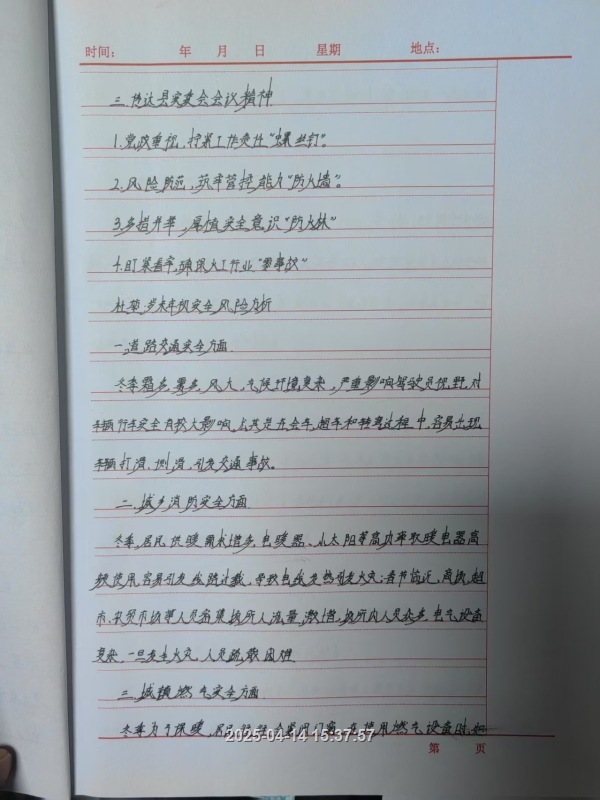 时间: 年 月 日 星期 地点:
三.传达县安委会会议精神
1.党政重视,拧紧工作责任“螺丝钉”。
2.风险防范,筑牢管控能力“防火墙”。
3.多措并举,厚植安全意识“防火林”
4.盯紧看牢,确保火工行业“零事故”
杜菊:岁末年初安全风险分析
一.道路交通安全方面
冬季霜多、雾多、风大,气候环境复杂,严重影响驾驶员视野,对
车辆行车安全有较大影响,尤其是在会车、超车和转弯过程中,容易出现
车辆打滑、侧滑,引发交通事故。
二.城乡消防安全方面
冬季,居民供暖需求增多,电暖器、小太阳等高功率取暖电器高
频使用,容易引发线路过载,导致电线发热引发火灾;春节临近,商场、超
市、农贸市场等人员密集场所人流量激增,场所内人员众多,电气设备
复杂,一旦发生火灾,人员疏散困难
三.城镇燃气安全方面
冬季为了保暖,居民 会紧闭门窗,在使用燃气设备时,如
2025-04-14 15:37:57
第 页